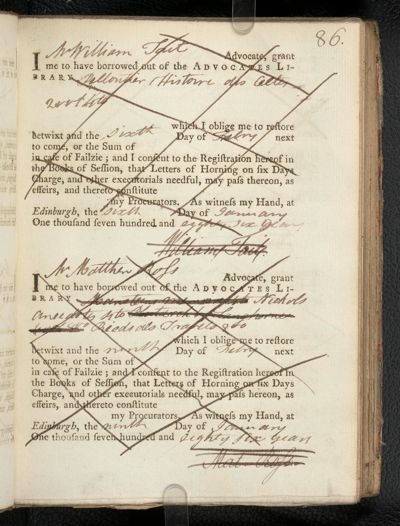 86.
I Mr William Tait Advocate, grant
me to have borrowed out of the ADVOCATES LI-
BRARY Histoire des Celtes
2 vol
which I oblige me to restore
betwixt and the Sixth Day of Febry next
to come, or the Sum of
in case of Failzie; and I consent to the Registration hereof in
the Books of Session, that Letters of Horning on six Days
Charge, and other executorials needful, may pass thereon, as
effeirs, and thereto constitute
my Procurators. As witness my Hand, at
Edinburgh, the Sixth Day of January
One thousand seven hundred and eighty six years
William Tait
I Mr Matthew Ross Advocate, grant
me to have borrowed out of the ADVOCATES LI-
BRARY Nichols
Travels
which I oblige me to restore
betwixt and the ninth Day of Febry next
to come, or the Sum of
in case of Failzie; and I consent to the Registration hereof in
the Books of Session, that Letters of Horning on six Days
Charge, and other executorials needful, may pass hereon, as
effeirs, and thereto constitute
my Procurators. As witness my Hand, at
Edinburgh, the ninth Day of January
One thousand seven hundred and eighty six years
Mat. Ross